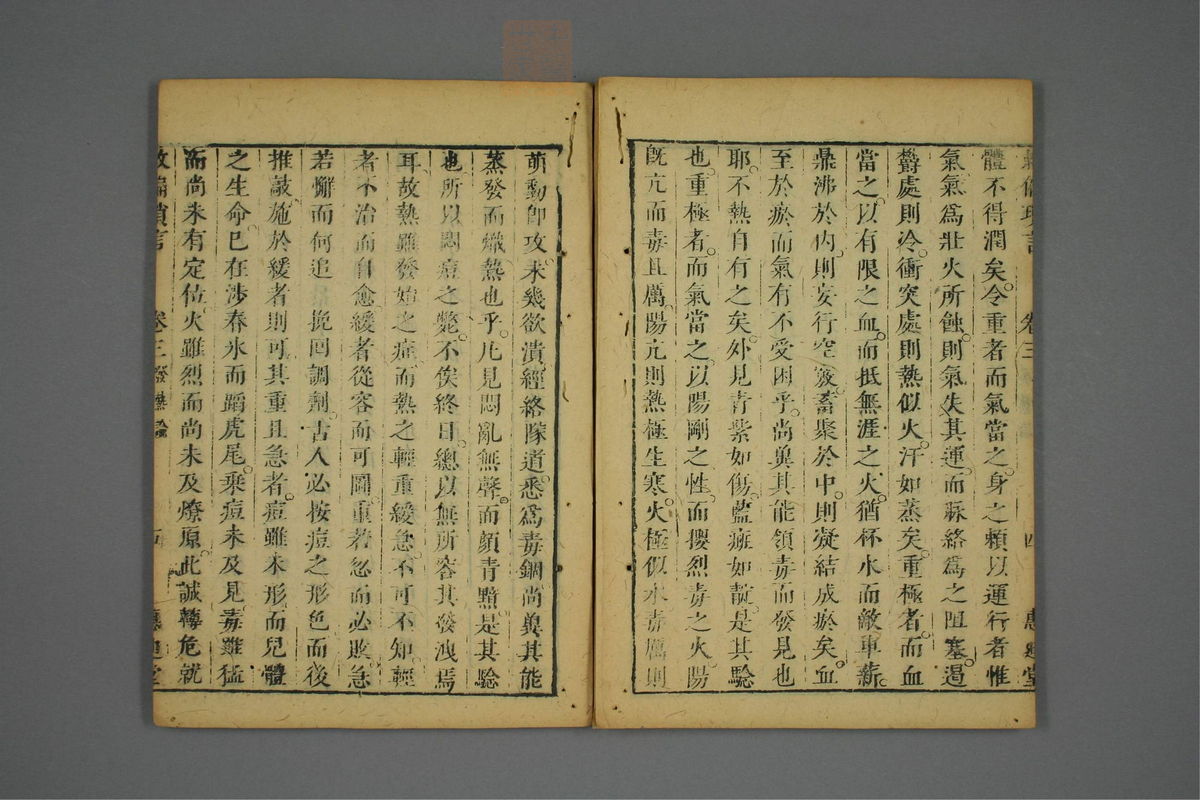 體不得潤矣令重者而氣當之身之賴以運行者惟
氣氣爲壯火所蝕則氣失其運而脉絡爲之阻塞遏
欝處則冷衝突處則熱似火汗如蒸矣重極者而血
當之以有限之血而抵無涯之火猶杯水而敵車薪
鼎沸於内則妄行空竅畜聚於中則凝結成瘀矣血
至於瘀而氣有不受困乎尚奠其能領毒而發見也
耶不熱自有之矣外見青紫如傷藍斑如靛是其騐
也重極者而氣當之以陽剛之性而攖烈毒之火陽
旣亢而毒且厲陽亢則熱極生寒火極似水毒厲則
萌動卽攻未幾欲潰經絡隊道悉爲毒錮尚奠其能
蒸發而熾熱也乎凡見悶亂無聲而顏青黯是其騐
也所以悶痘之斃不俟終日總以無所容其發洩焉
耳故熱雖發痘之症而熱之輕重緩急不可不知輕
者不治而自愈緩者從容而可圖重若忽而必敗急
若懈而何追挽囘調劑古人必按痘之形色而後
推敲施於緩者則可其重且急者痘雖未形而兒體
之生命已在涉春氷而蹈虎尾乗痘未及見毒雖猛
而尚未有定位火雖烈而尚未及燎原此誠轉危就
卷三 發熱論 四